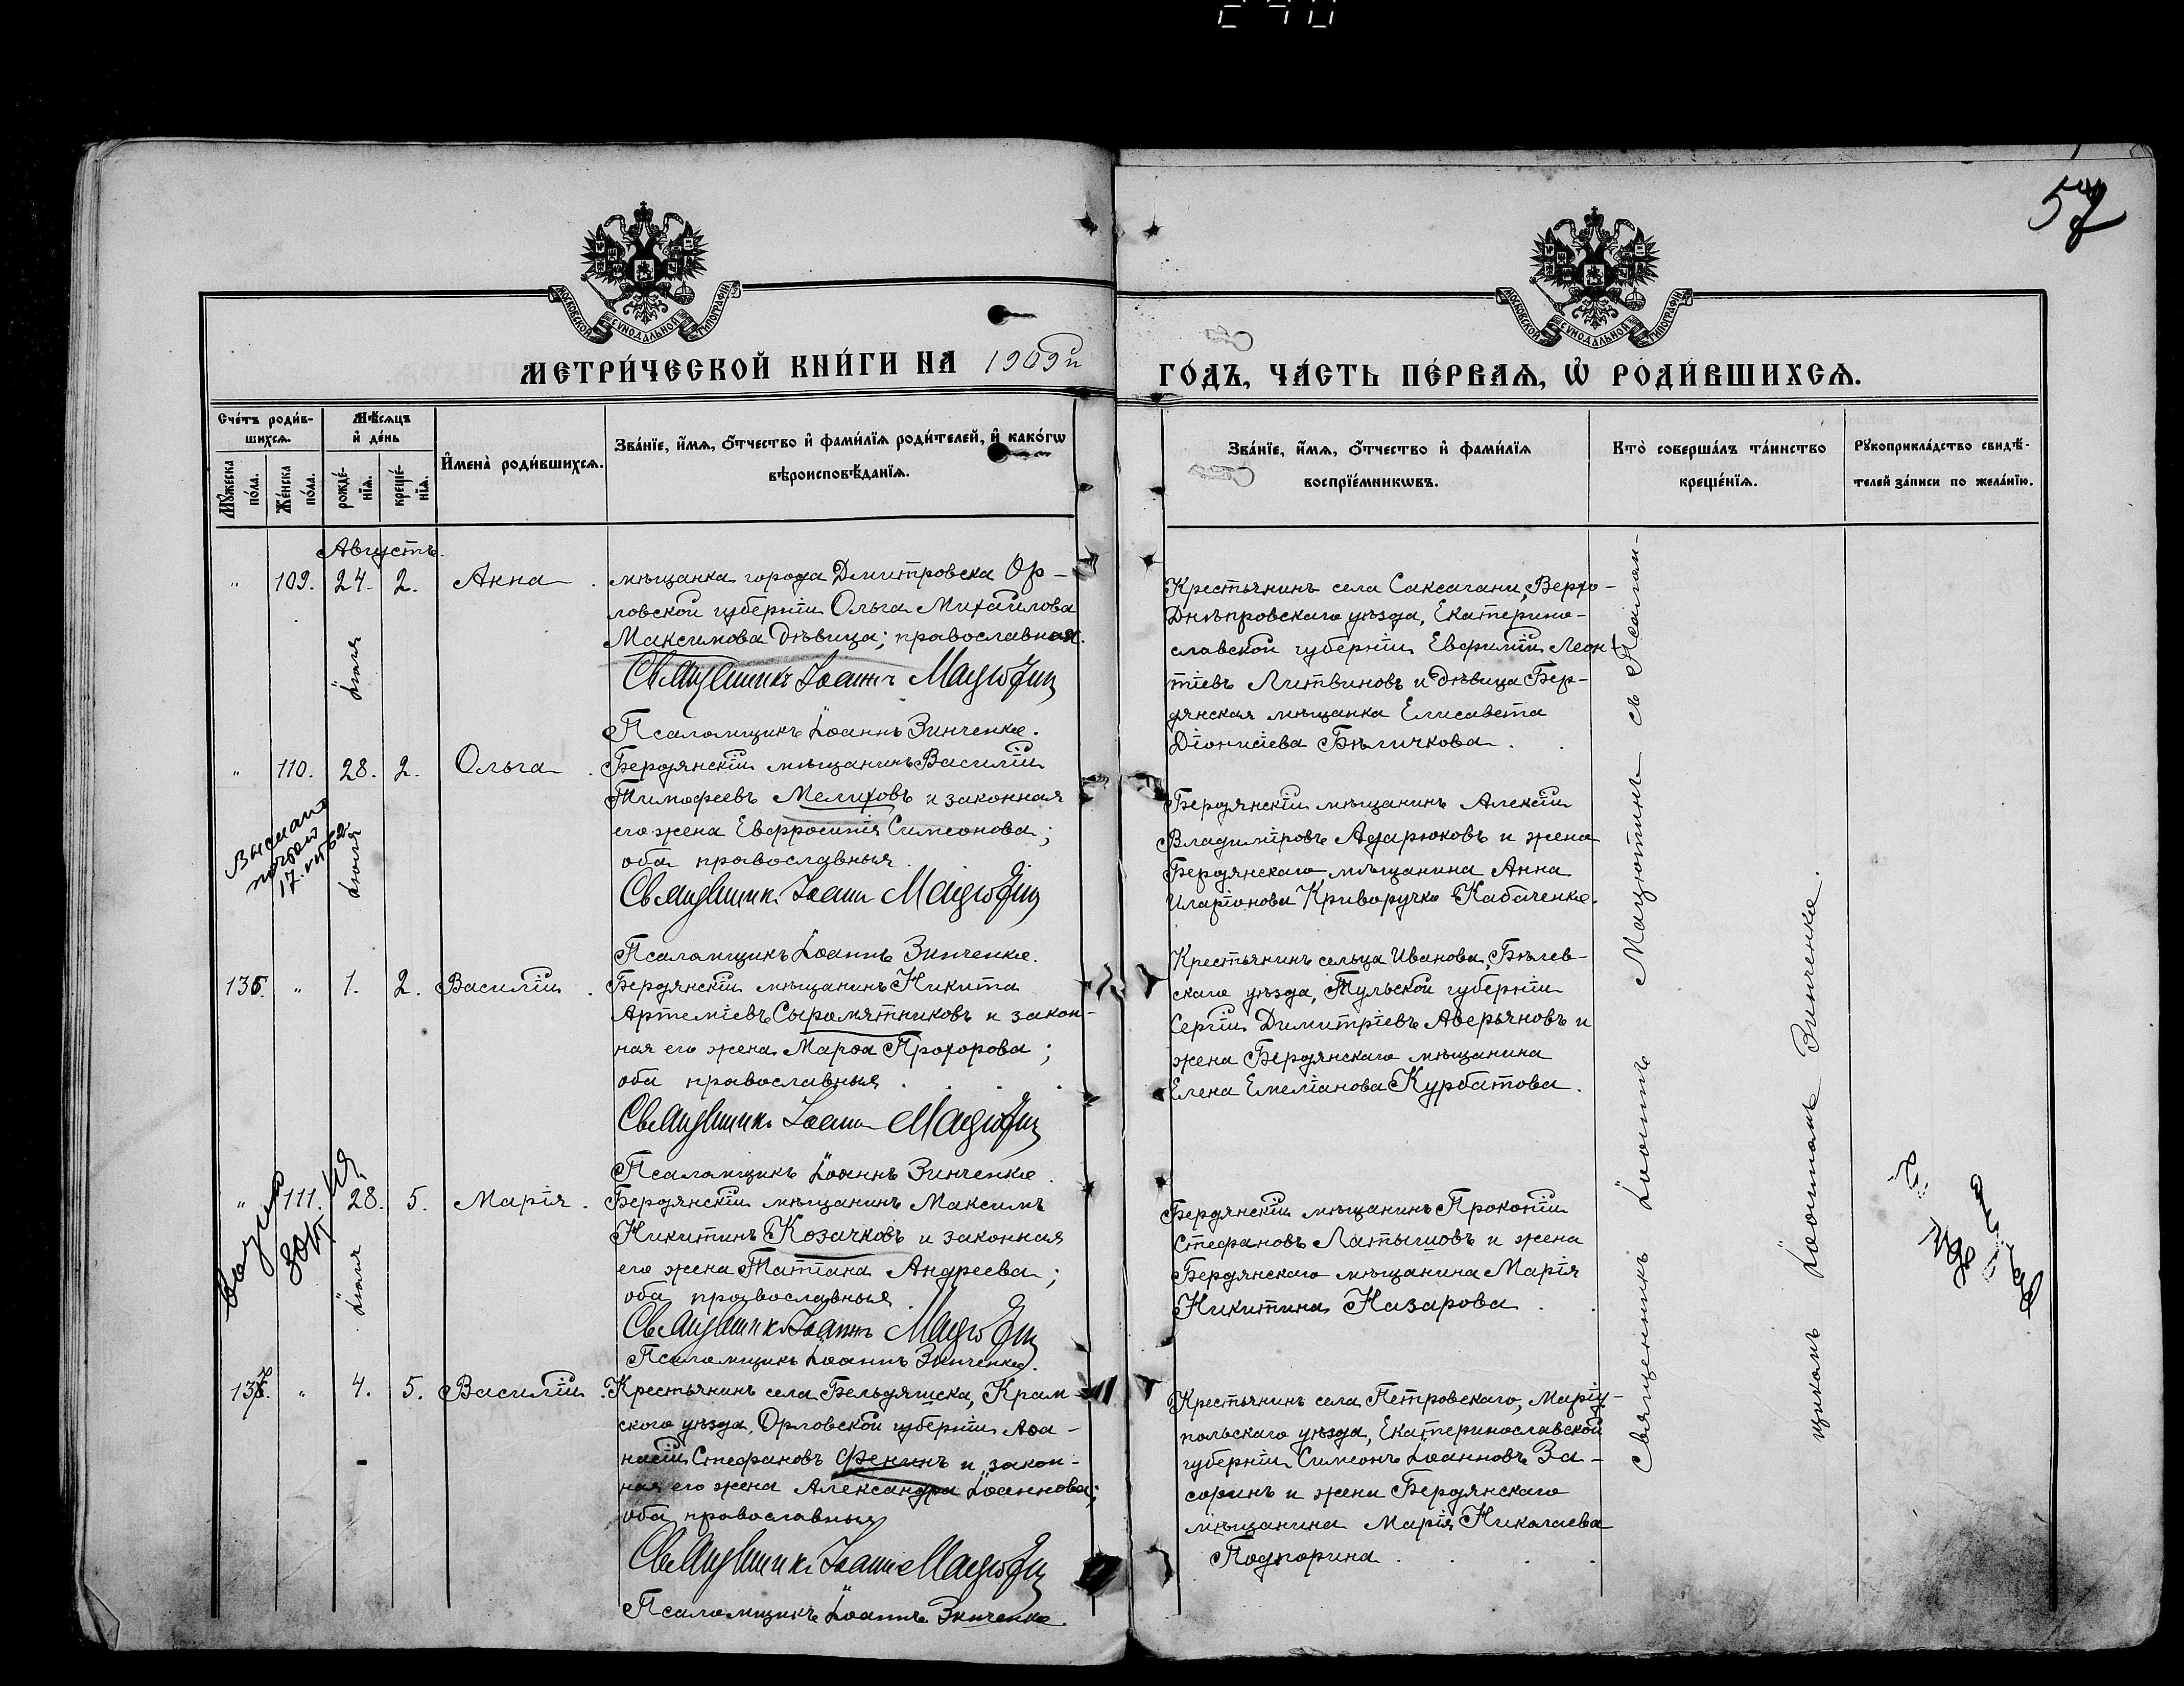 57
МОСКОВСКОЙ СѴНОДАЛЬНОЙ ТИПОГРАФІИ
МОСКОВСКОЙ СѴНОДАЛЬНОЙ ТИПОГРАФІИ
МЕТРИ́ЧЕСКОЙ КНИ́ГИ НА 1909й ГО́ДЪ, ЧА́СТЬ ПЕ́РВАѦ, Ѡ҆ РОДИ́ВШИХСѦ.
Сче́тъ роди́в-
шихсѧ.
Мѣ́сѧцъ
и҆ де́нь
Мꙋ́жеска по́ла.
Же́нска по́ла.
рожде́-
нїѧ.
креще́-
нїѧ.
И҆мена̀ роди́вшихсѧ.
Зва́нїе, и҆́мѧ, ѻ҆́тчество и҆ фами́лїѧ роди́телей, и҆ како́гѡ
вѣроисповѣ́данїѧ.
Зва́нїе, и҆́мѧ, ѻ҆́тчество и҆ фами́лїѧ
воспрїе́мникѡвъ.
Кто̀ соверша́лъ та́инство
креще́нїѧ.
Рꙋкоприкла́дство свидѣ́-
телей за́писи по жела́нїю.
Августъ.
" 109. 24. 2. Анна.
Іюля
мѣщанка города Дмитровска Ор-
ловской губерніи Ольга Михайлова
Максимова дѣвица; православная.
Священникъ Іоаннъ Мацютин
Псаломщикъ Іоаннъ Зинченко.
Крестьянинъ села Саксагани, Верхо-
Днѣпровскаго уѣзда, Екатерино-
славской губерніи Евфимій Леон-
тіевъ Литвиновъ и дѣвица Бер-
дянская мѣщанка Елисавета
Діонисіева Бѣличкова.
" 110. 28. 2. Ольга.
Іюля
Выслано
почтою
17.
Бердянскій мѣщанинъ Василій
Тимофеевъ Мелиховъ и законная
его жена Евфросинія Симеонова;
оба православныя.
Священник Іоанн Мацютин
Псаломщикъ Іоаннъ Зинченко.
Бердянскій мѣщанинъ Алексій
Владиміровъ Адарюковъ и жена
Бердянскаго мѣщанина Анна
Иларіонова Криворучко Кабаченко.
136. " 1. 2. Василій.
Бердянскій мѣщанинъ Никита
Артеміевъ Сыромятниковъ и закон-
ная его жена Марѳа Прохорова;
оба православныя.
Священник Іоанн Мацютин
Псаломщикъ Іоаннъ Зинченко.
Крестьянинъ сельца Иванова, Бѣлев-
скаго уѣзда, Тульской губерніи
Сергій Димитріевъ Аверьяновъ и
жена Бердянскаго мѣщанина
Елена Емеліанова Курбатова.
" 111. 28. 5. Марія.
Іюля
Бердянскій мѣщанинъ Максимъ
Никитинъ Козачковъ и законная
его жена Татіана Андреева;
оба православныя.
Священник Іоаннъ Мацютин
Псаломщикъ Іоаннъ Зинченко.
Бердянскій мѣщанинъ Прокопій
Стефановъ Латышовъ и жена
Бердянскаго мѣщанина Марія
Никитина Назарова.
137. " 4. 5. Василій.
Крестьянинъ села Бельдяшска, Кром-
ского уѣзда, Орловской губерніи Аѳа-
насій Стефановъ Фенинъ и закон-
ная его жена Александра Іоаннова;
оба православныя
Священник Іоанн Мацютин
Псаломщикъ Іоаннъ Зинченко.
Крестьянинъ села Петровскаго, Маріу-
польскаго уѣзда, Екатеринославской
губерніи Симеонъ Іоанновъ За-
соринъ и жена Бердянскаго
мѣщанина Марія Николаева
Подпорина.
Священникъ Іоаннъ Мацютинъ съ Псалом-
щикомъ Іоанномъ Зинченко.